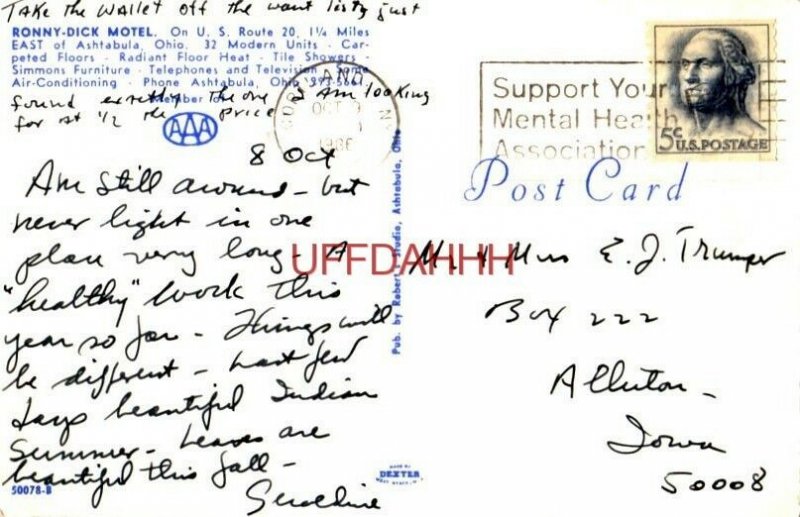 TAKE the WALLET off the want list, just
RONNY-DICK MOTEL. On U. S. Route 20, 1¼ Miles
EAST of Ashtabula, Ohio. 32 Modern Units - Car-
peted Floors - Radiant Floor Heat - Tile Showers -
Simmons Furniture - Telephones and Television - Some
Air-Conditioning - Phone Ashtabula, Ohio
found exactly the one I Am looking
for at 1/2 the price
Member of
AAA
8 Oct
Am still around - but
never light in one
place very long - A
"healthy" work this
year so far - Things will
be different - Last few
days beautiful Indian
Summer - Leaves are
beautiful this fall -
Geraldine
50078-B
Pub. by Robert Studio, Ashtabula, Ohio
MADE BY
DEXTER
WEST NYACK, N.Y.
OCT
Support Your
Mental Health
Association
5c U.S. POSTAGE
Post Card
UFFDAHHH
Mr & Mrs E. J. Trumper
Box 222
Alleman -
Iowa
50008